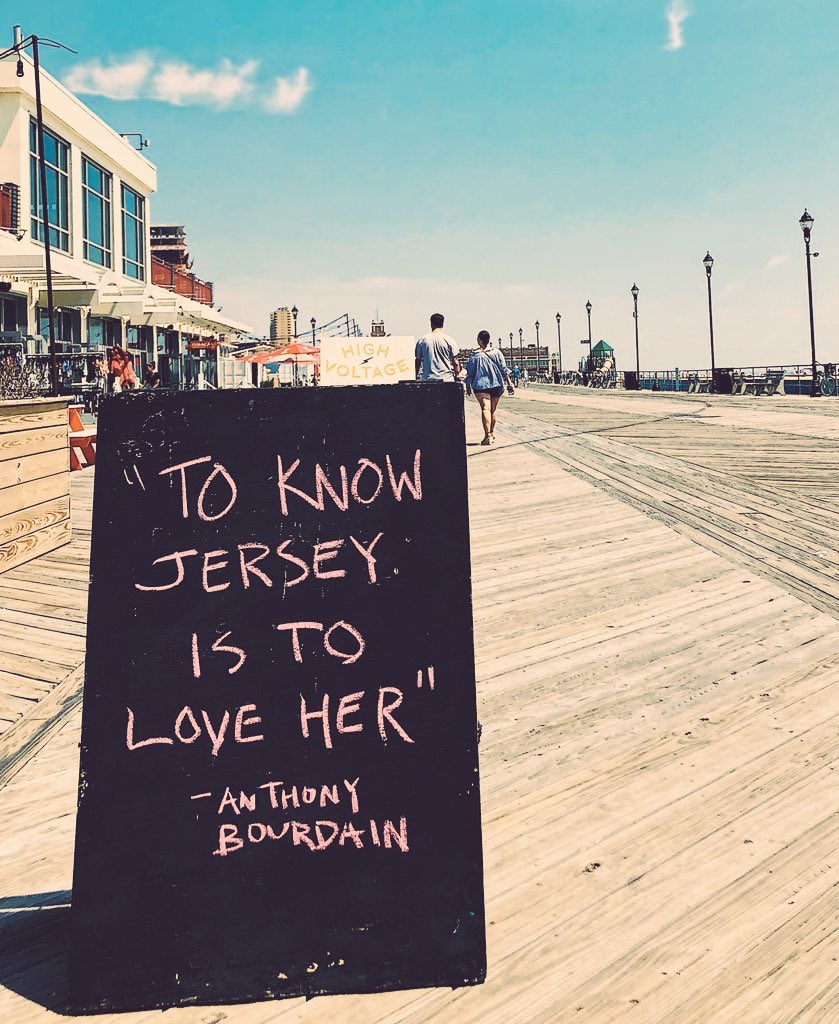 HIGH
VOLTAGE
"TO KNOW
JERSEY
IS TO
LOVE HER"
-ANTHONY
BOURDAIN